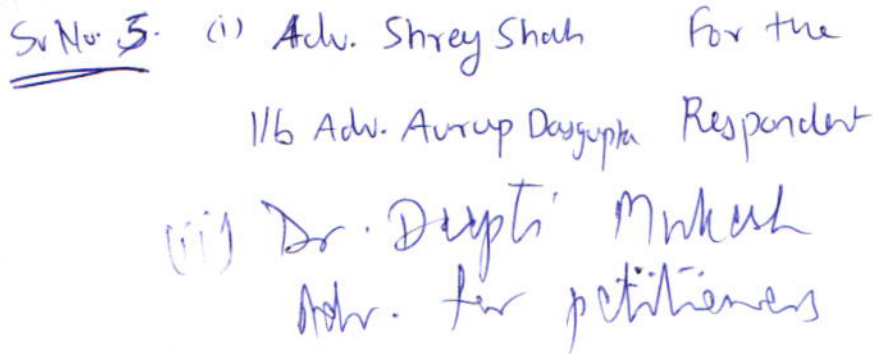 Sr No. 5. (i) Adv. Shrey Shah For the
I/b Adv. Aurup Dasgupta Respondent
(ii) Dr. Deepti Mukesh
Adv. for petitioners